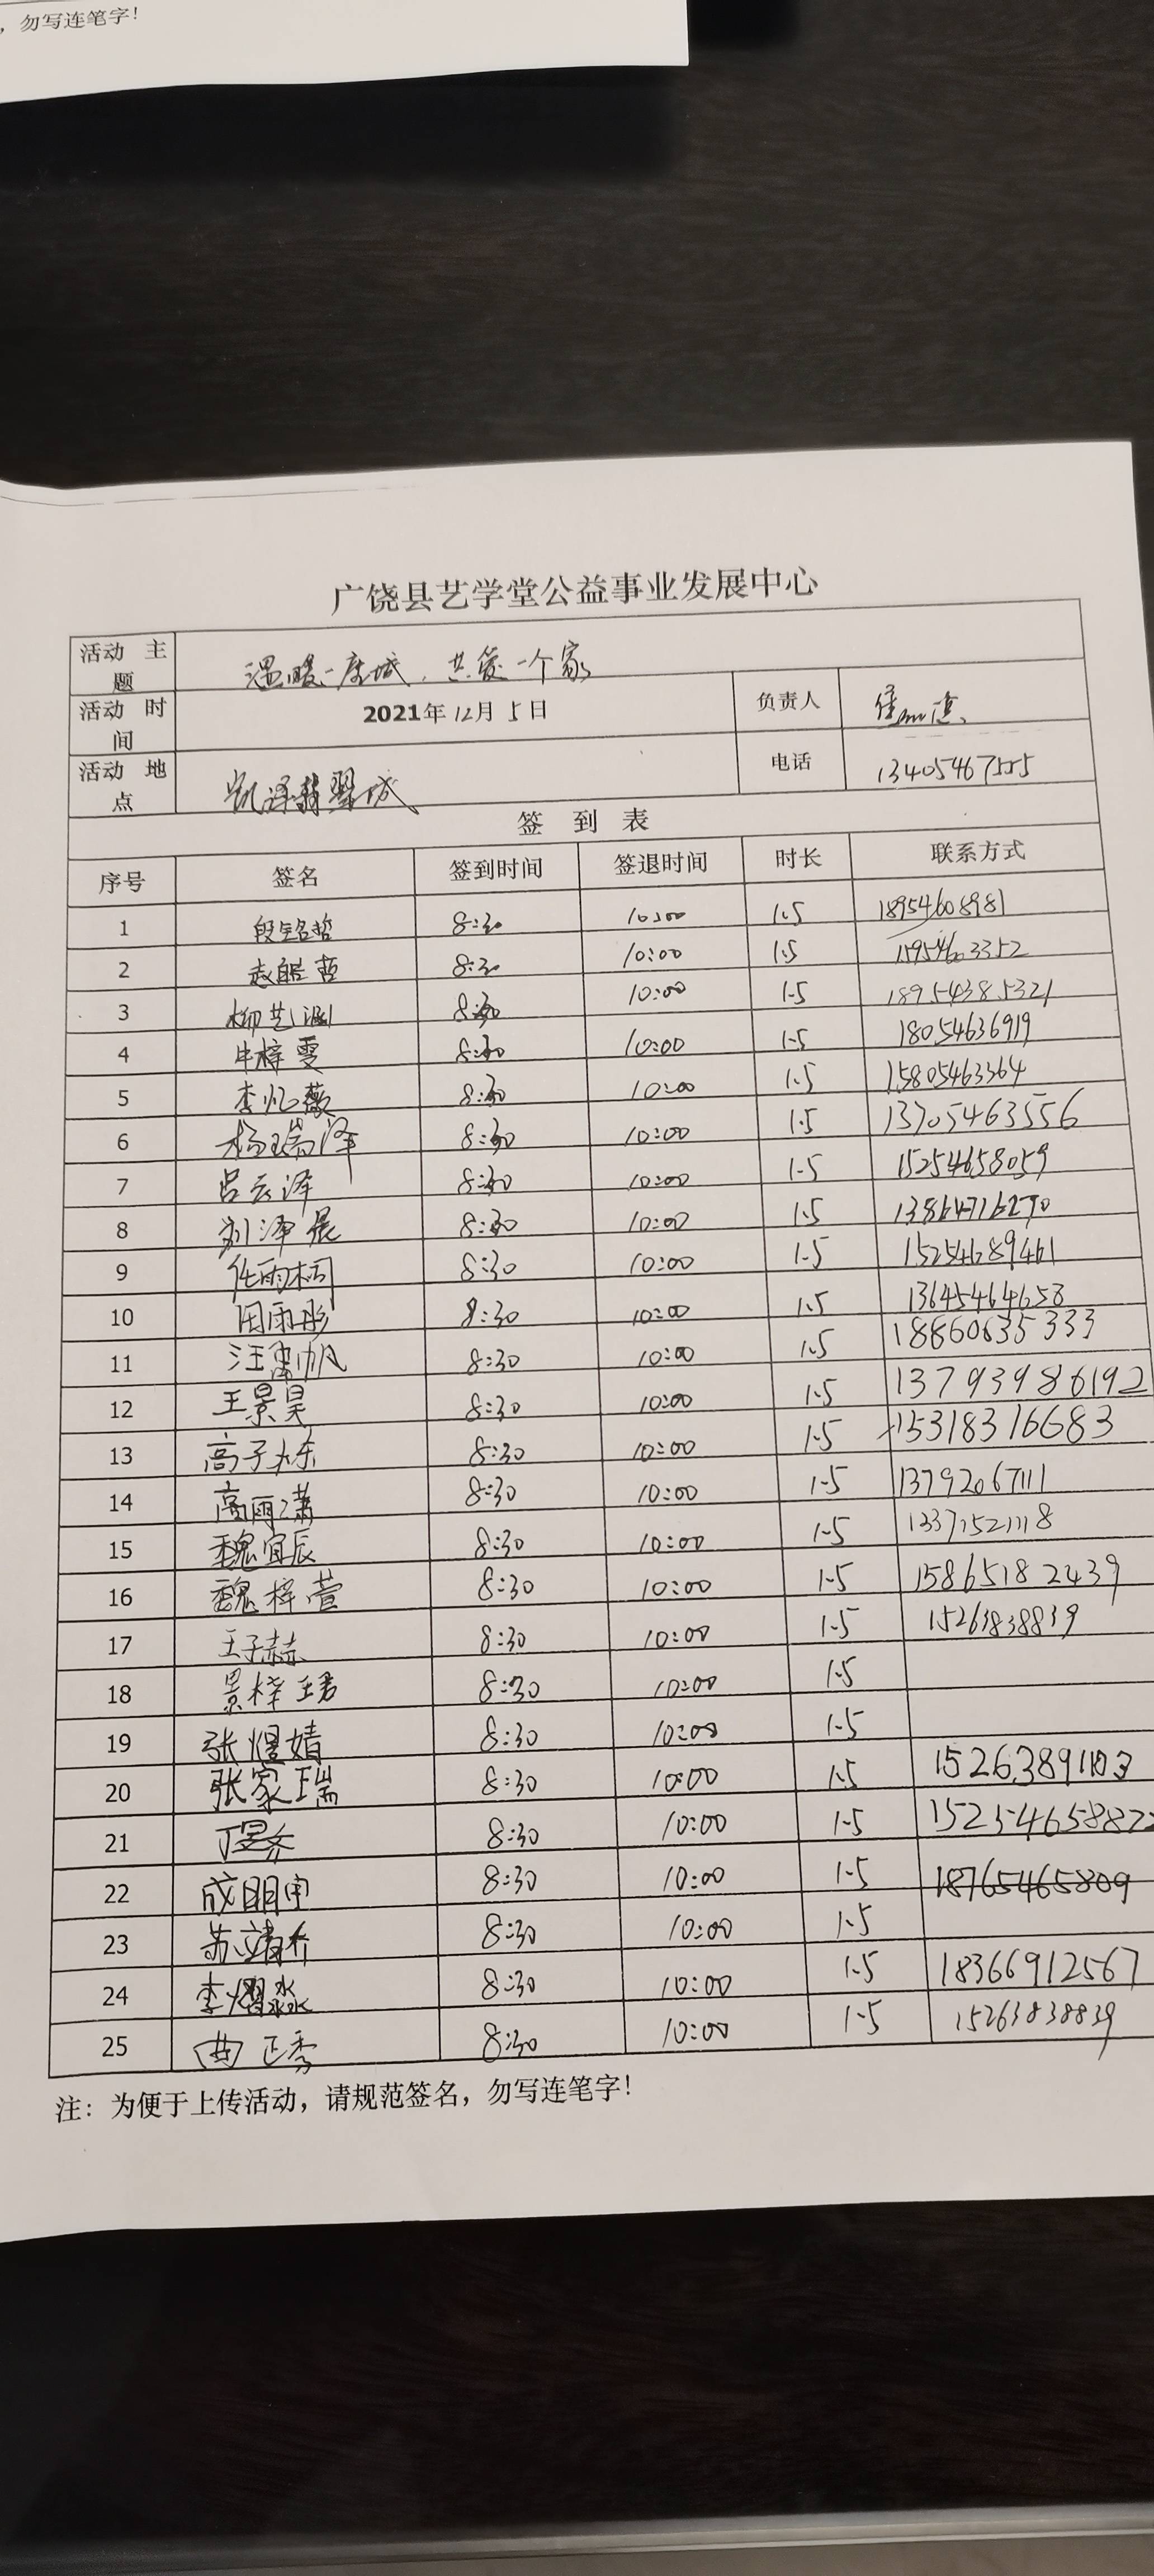 ，勿写连笔字！
广饶县艺学堂公益事业发展中心
活动 主题 温暖一座城，共爱一个家
活动 时间 2021年12月5日 负责人
活动 地点 凯泽翡翠城 电话 13405467555
签 到 表
序号 签名 签到时间 签退时间 时长 联系方式
1 段铭哲 8:30 10:00 1.5 18954608981
2 赵皓哲 8:30 10:00 1.5 15954603352
3 柳艺涵 8:30 10:00 1.5 18954385321
4 牛梓雯 8:30 10:00 1.5 18054636919
5 李忆薇 8:30 10:00 1.5 15805463364
6 杨瑞泽 8:30 10:00 1.5 13705463556
7 吕云泽 8:30 10:00 1.5 15254658059
8 刘泽晨 8:30 10:00 1.5 13864716290
9 任雨桐 8:30 10:00 1.5 15254689461
10 周雨彤 8:30 10:00 1.5 13645464658
11 汪帆 8:30 10:00 1.5 18860635333
12 王景昊 8:30 10:00 1.5 13793986192
13 高子 8:30 10:00 1.5 15318316683
14 高雨潇 8:30 10:00 1.5 13792067111
15 魏宜辰 8:30 10:00 1.5 13371521118
16 魏梓萱 8:30 10:00 1.5 15865182439
17 王子赫 8:30 10:00 1.5 15263838839
18 景梓珺 8:30 10:00 1.5
19 张煜婧 8:30 10:00 1.5
20 张家瑞 8:30 10:00 1.5 15263891103
21 丁昱乔 8:30 10:00 1.5 15254658872
22 成明 8:30 10:00 1.5 18765465809
23 苏靖乔 8:30 10:00 1.5
24 李熠淼 8:30 10:00 1.5 18366912567
25 曲正秀 8:30 10:00 1.5 15263838839
注：为便于上传活动，请规范签名，勿写连笔字！